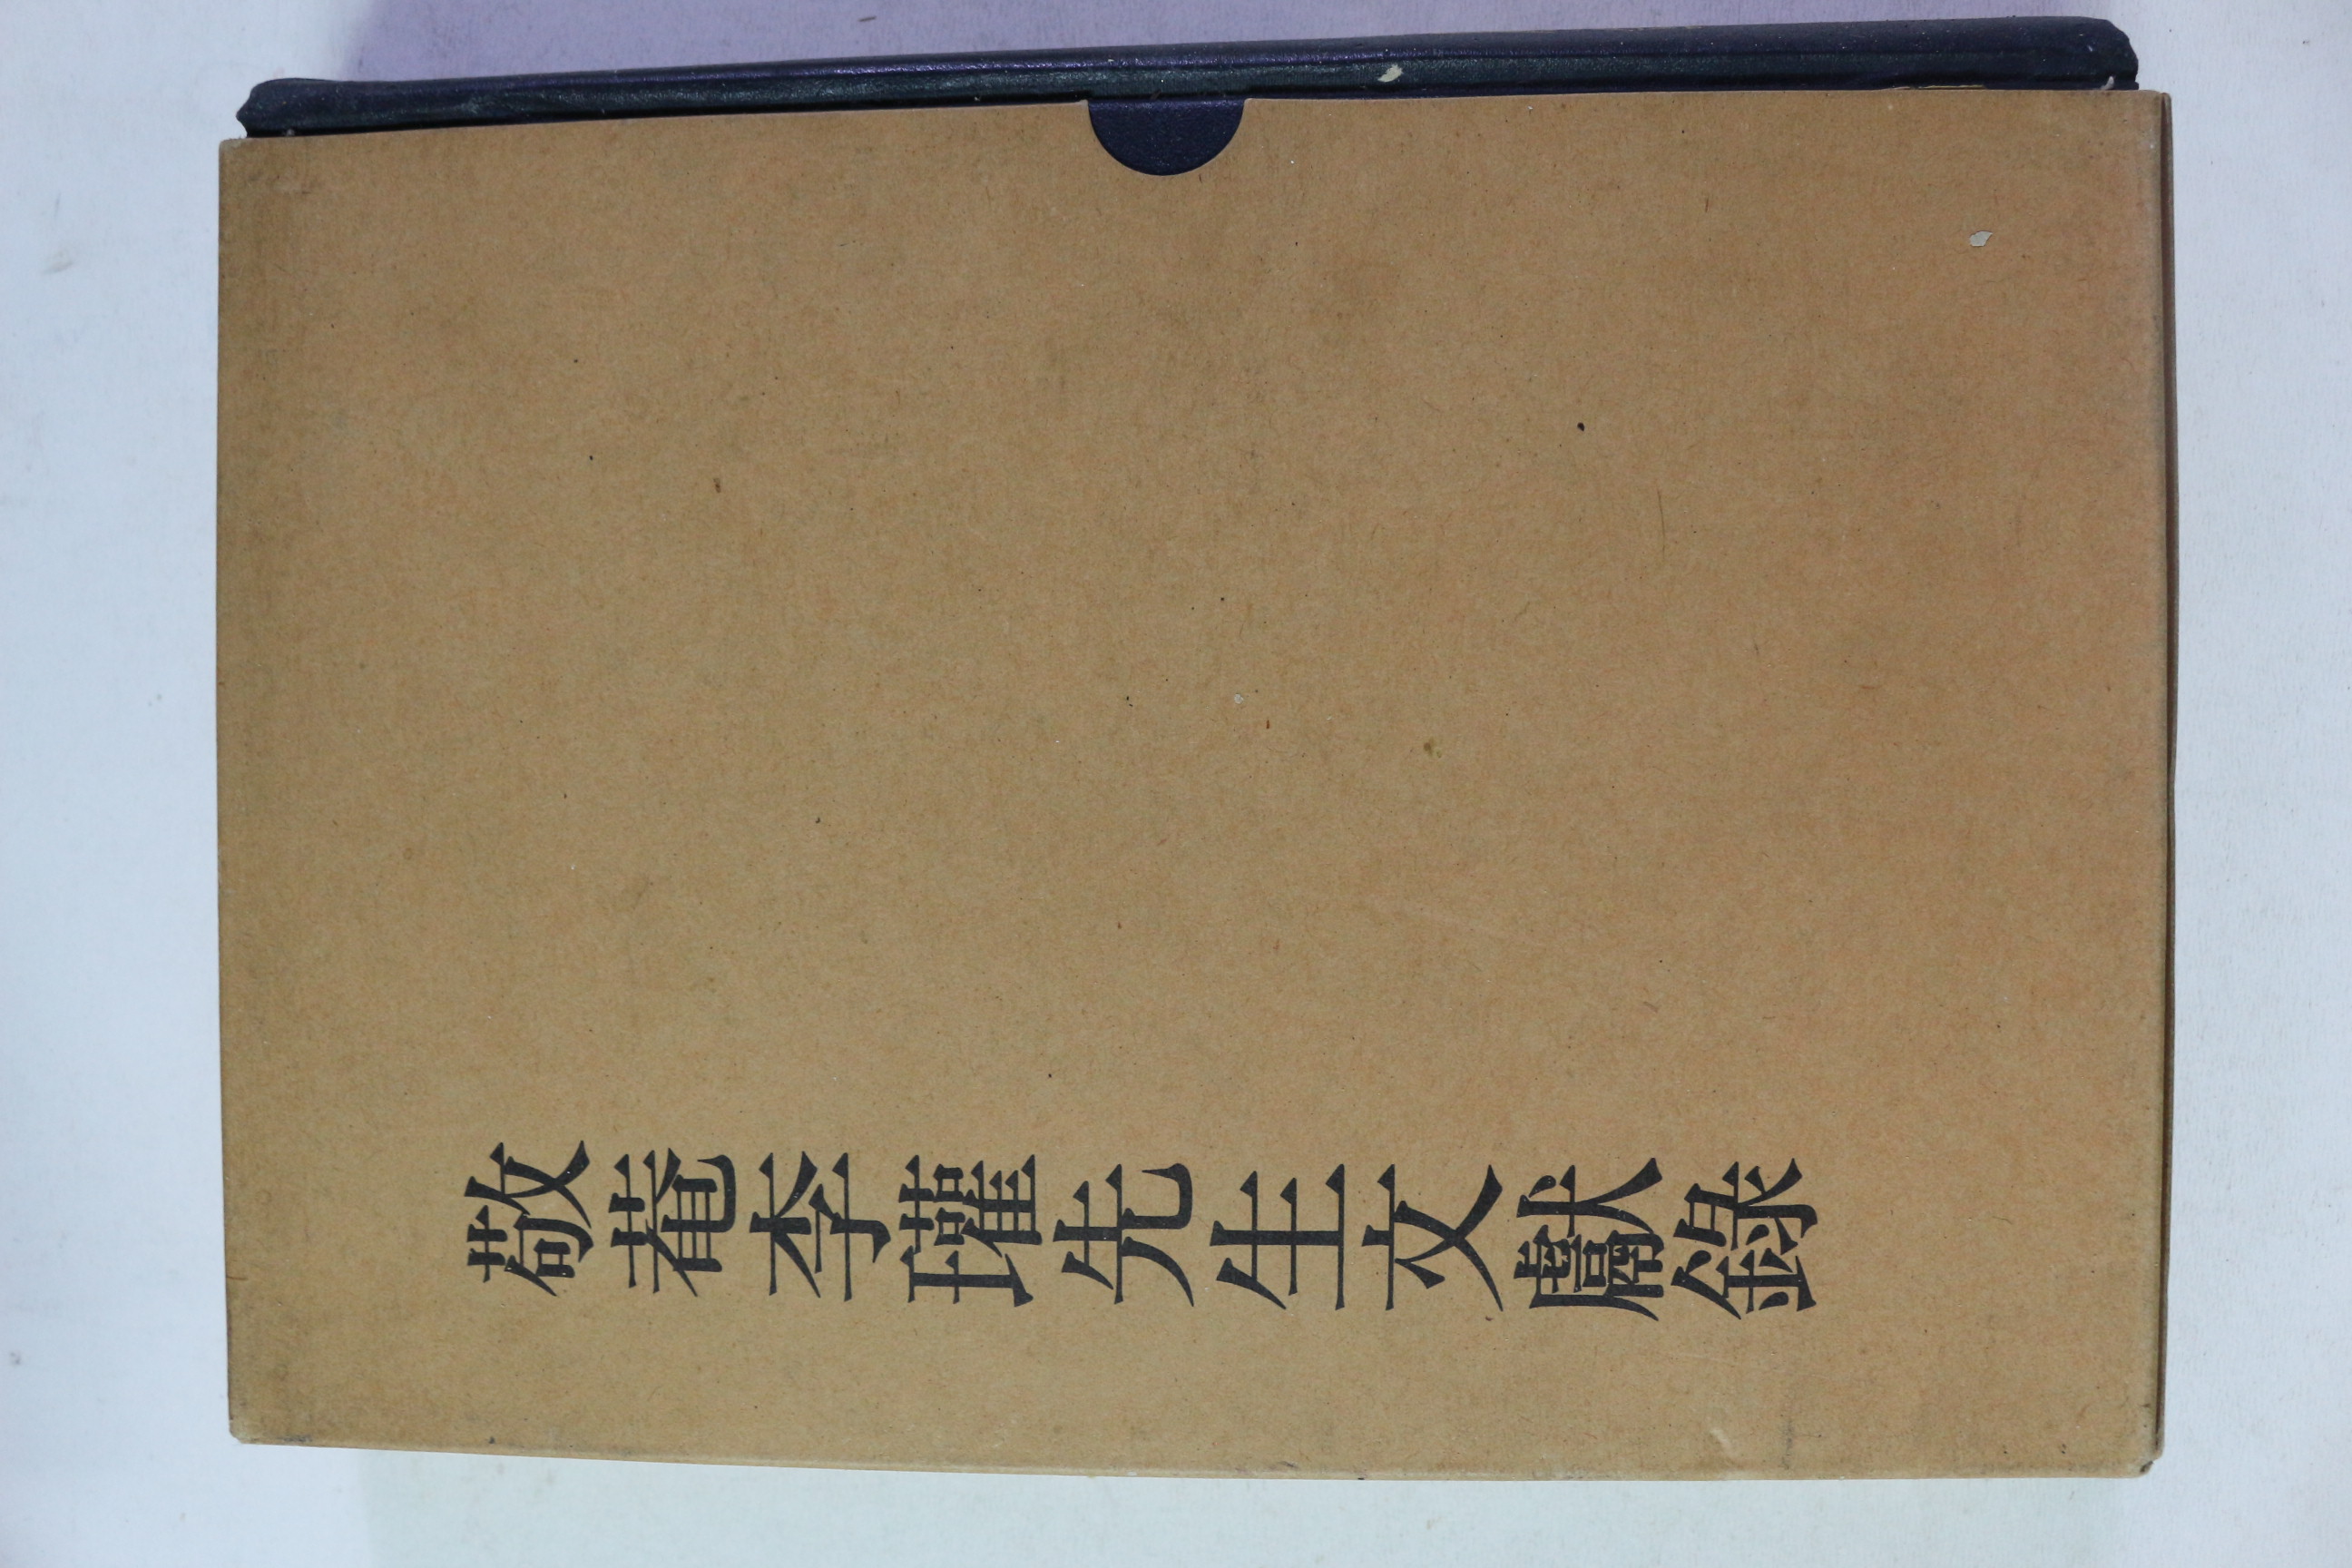 敬菴李瓘先生文獻錄